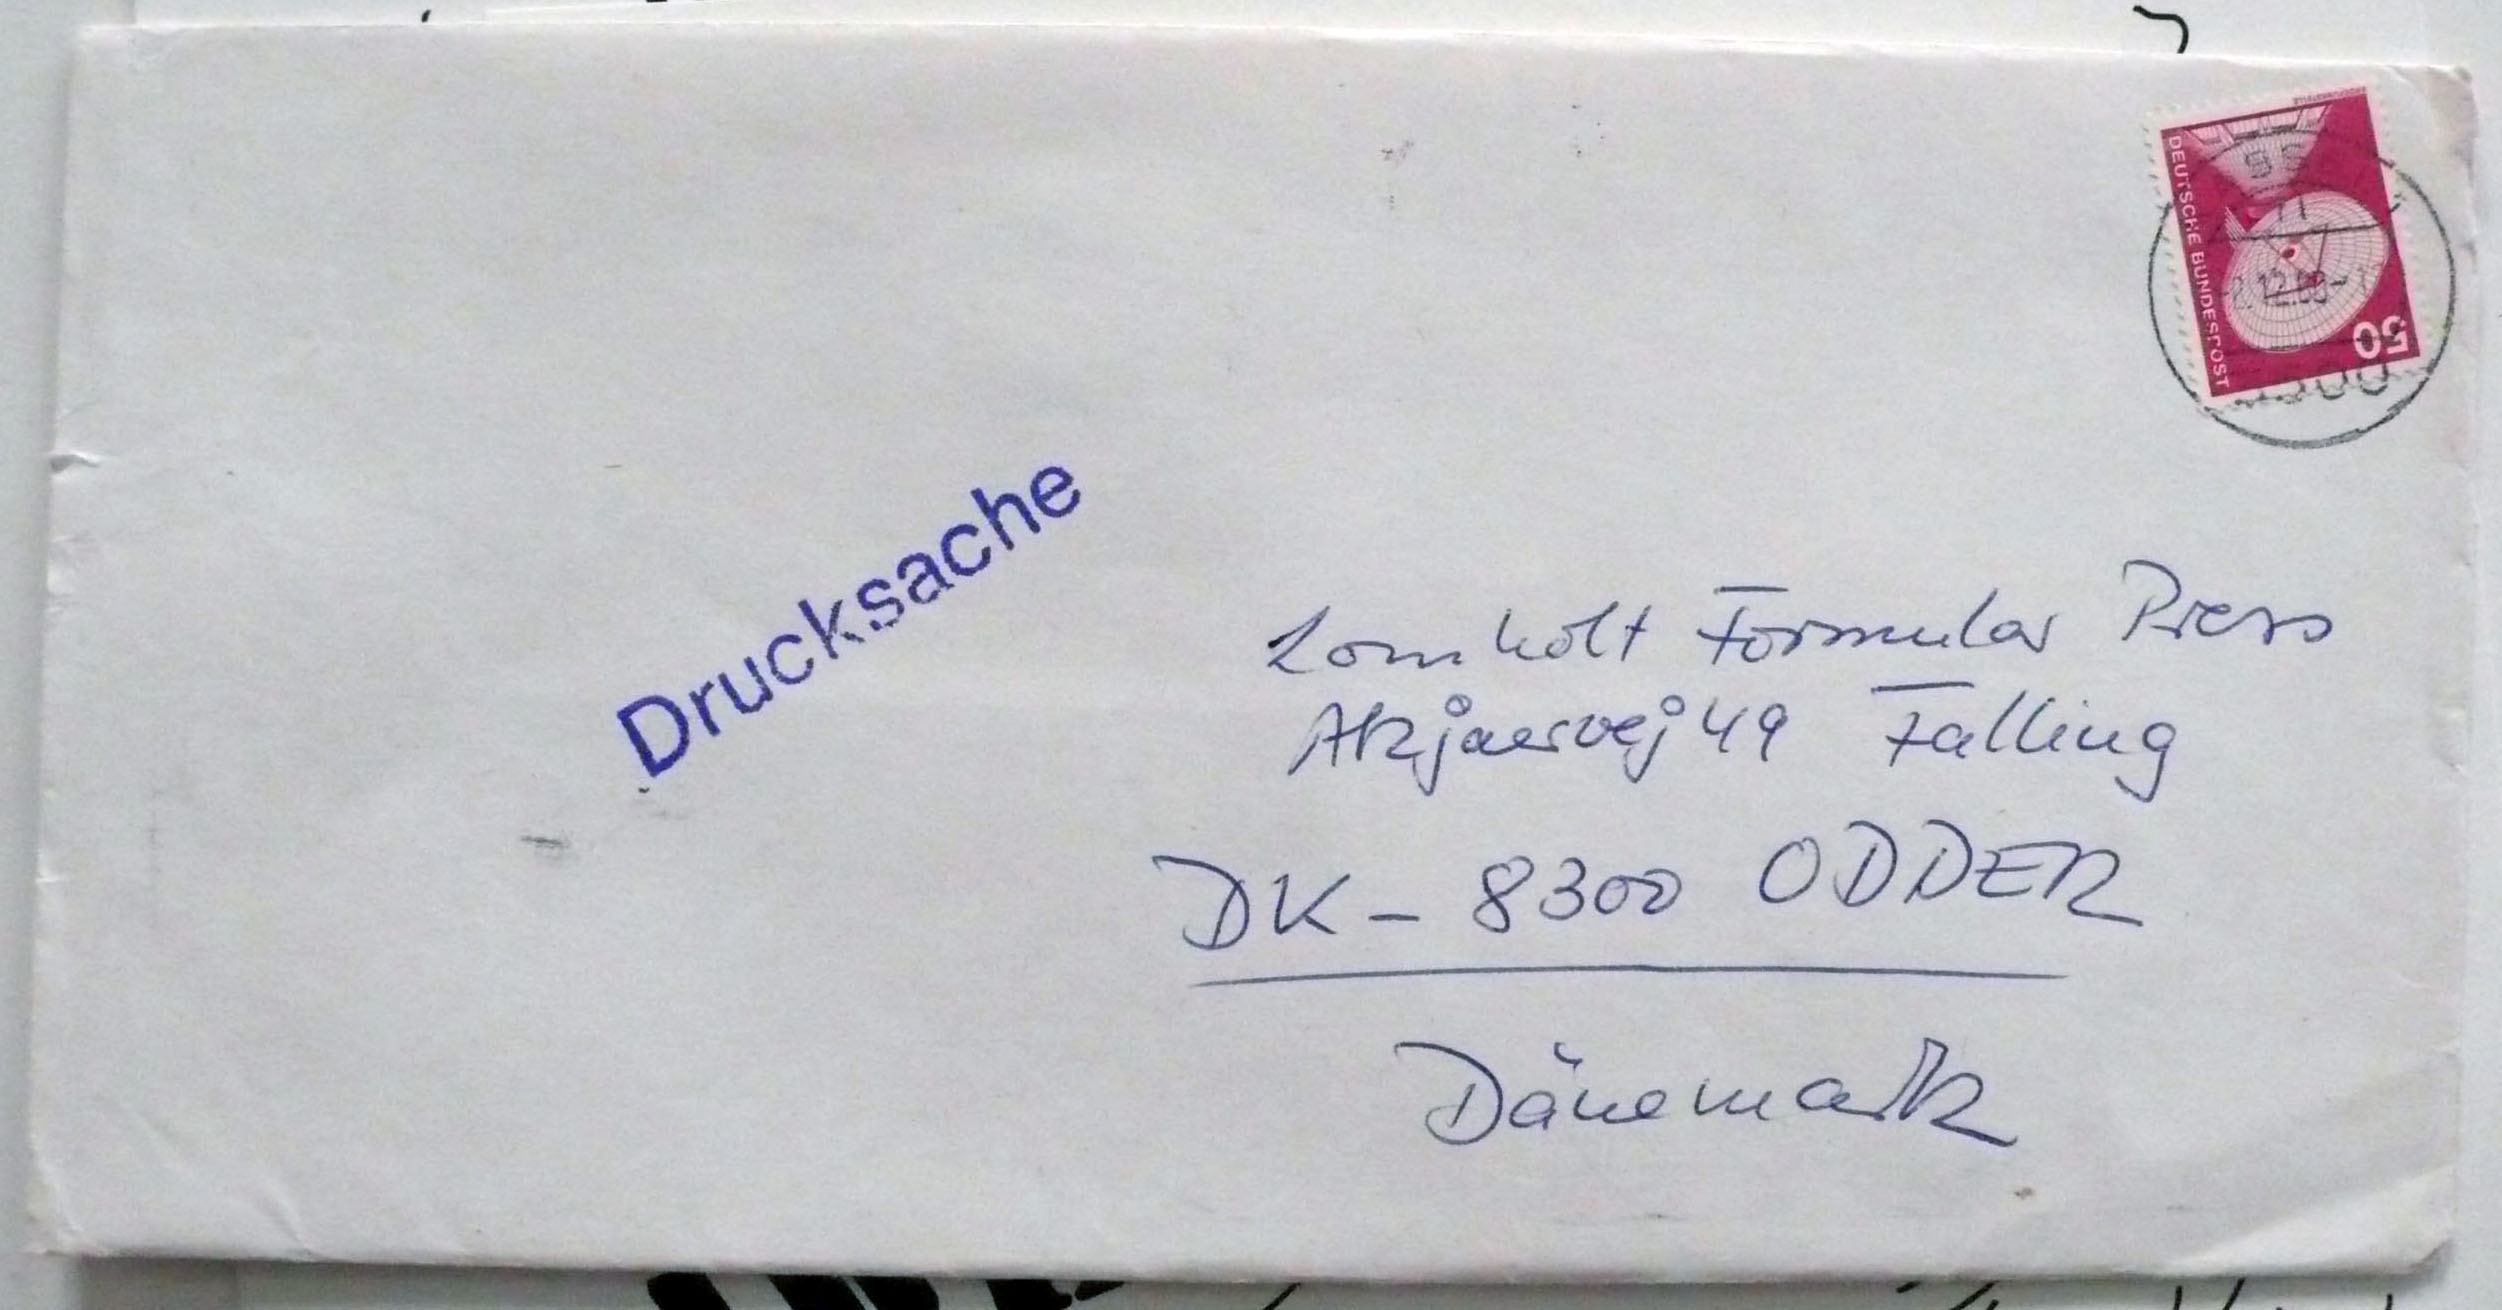 DEUTSCHE BUNDESPOST
50
Drucksache
Lomholt Formular Press
Akjaervej 49 Falling
DK - 8300 ODDER
Dänemark